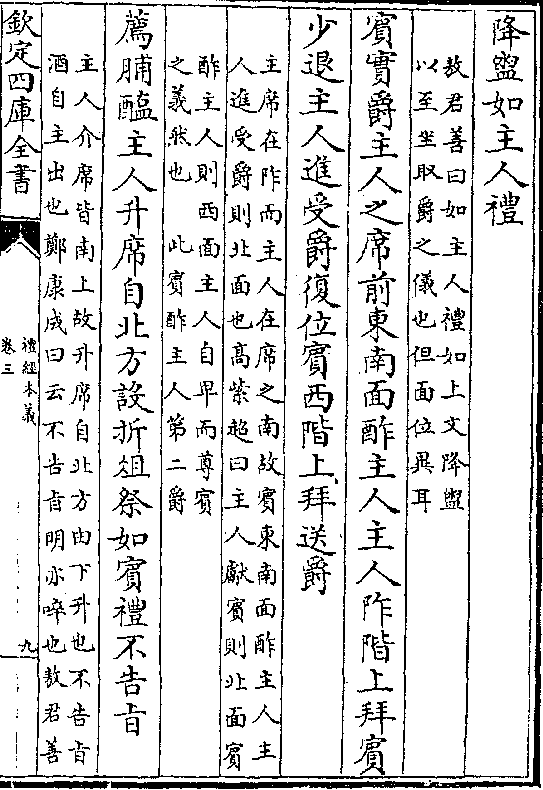 降盥如主人禮
敖君善曰如主人禮如上文降盥
以至坐取爵之儀也但面位異耳
賓實爵主人之席前東南面酢主人主人阼階上拜賓
少退主人進受爵復位賓西階上拜送爵
主席在阼而主人在席之南故賓東南面酢主人主
人進受爵則北面也髙紫超曰主人獻賓則北面賓
酢主人則西面主人自卑而尊賓
之義然也　此賓酢主人第二爵
薦脯醢主人升席自北方設折俎祭如賓禮不告旨
主人介席皆南上故升席自北方由下升也不告旨
酒自主出也鄭康成曰云不告旨明亦啐也敖君善
欽定四庫全書
禮經本義
卷三
九